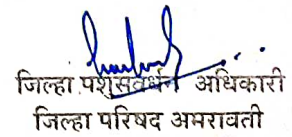 जिल्हा पशुसंवर्धन अधिकारी
जिल्हा परिषद अमरावती